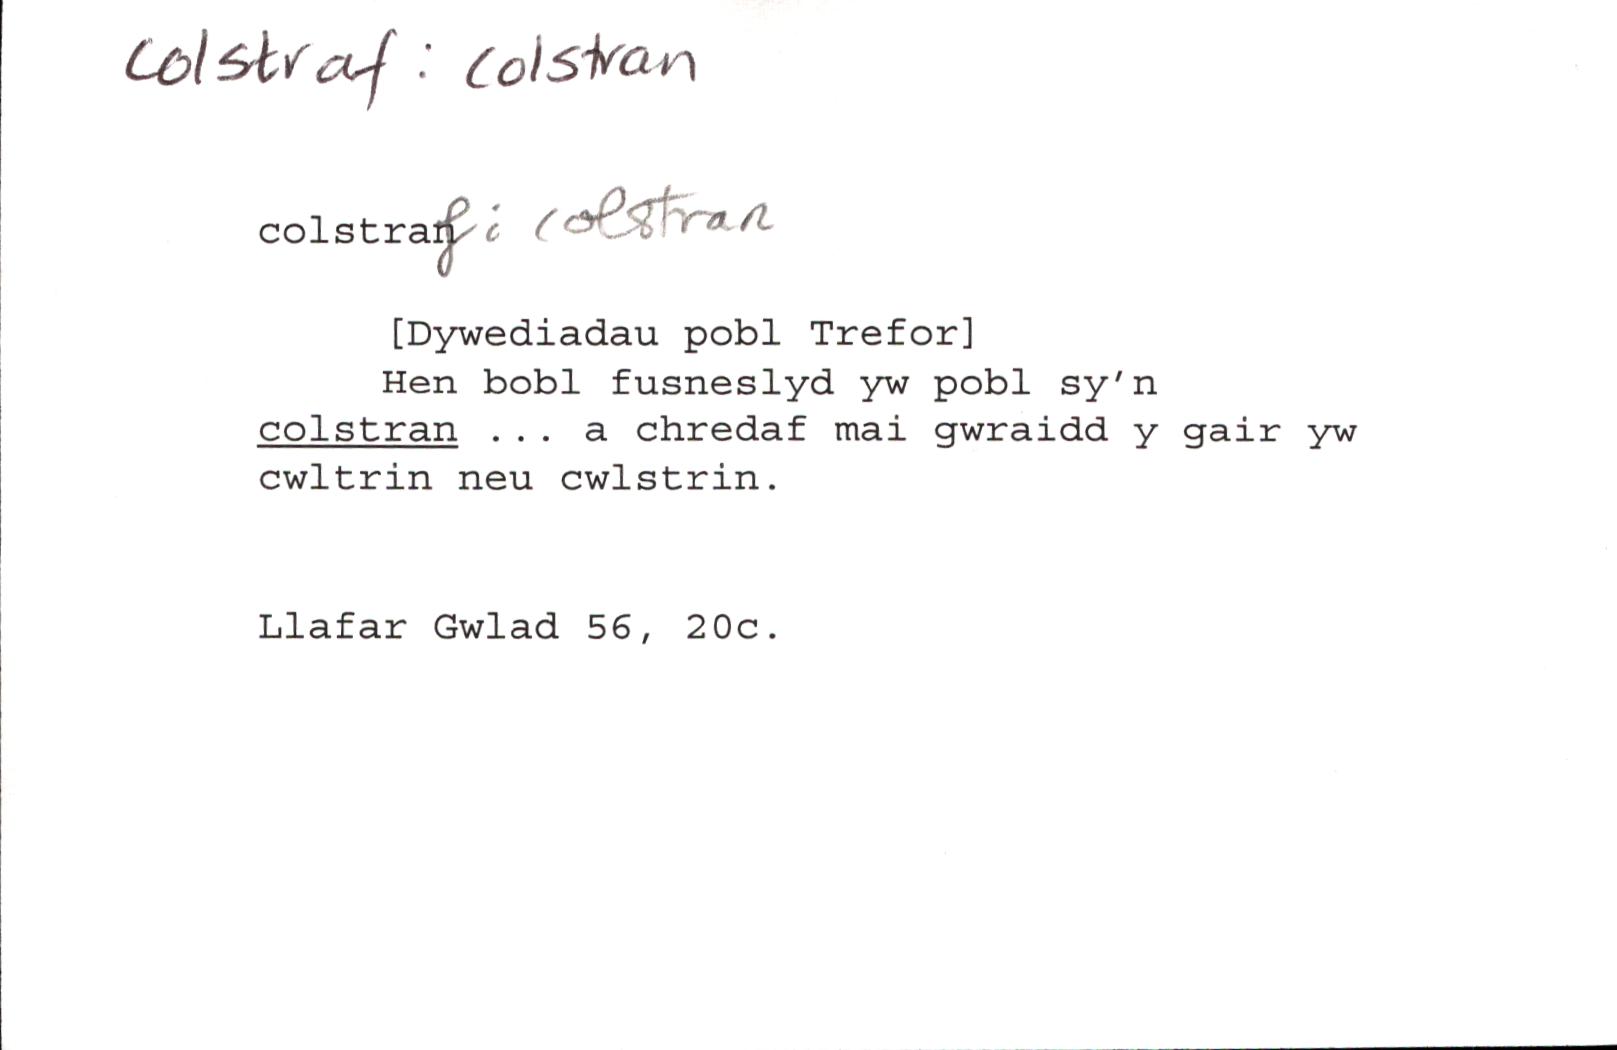 colstraf : colstran
colstraf : colstran
[Dywediadau pobl Trefor]
Hen bobl fusneslyd yw pobl sy'n
colstran ... a chredaf mai gwraidd y gair yw
cwltrin neu cwlstrin.
Llafar Gwlad 56, 20c.